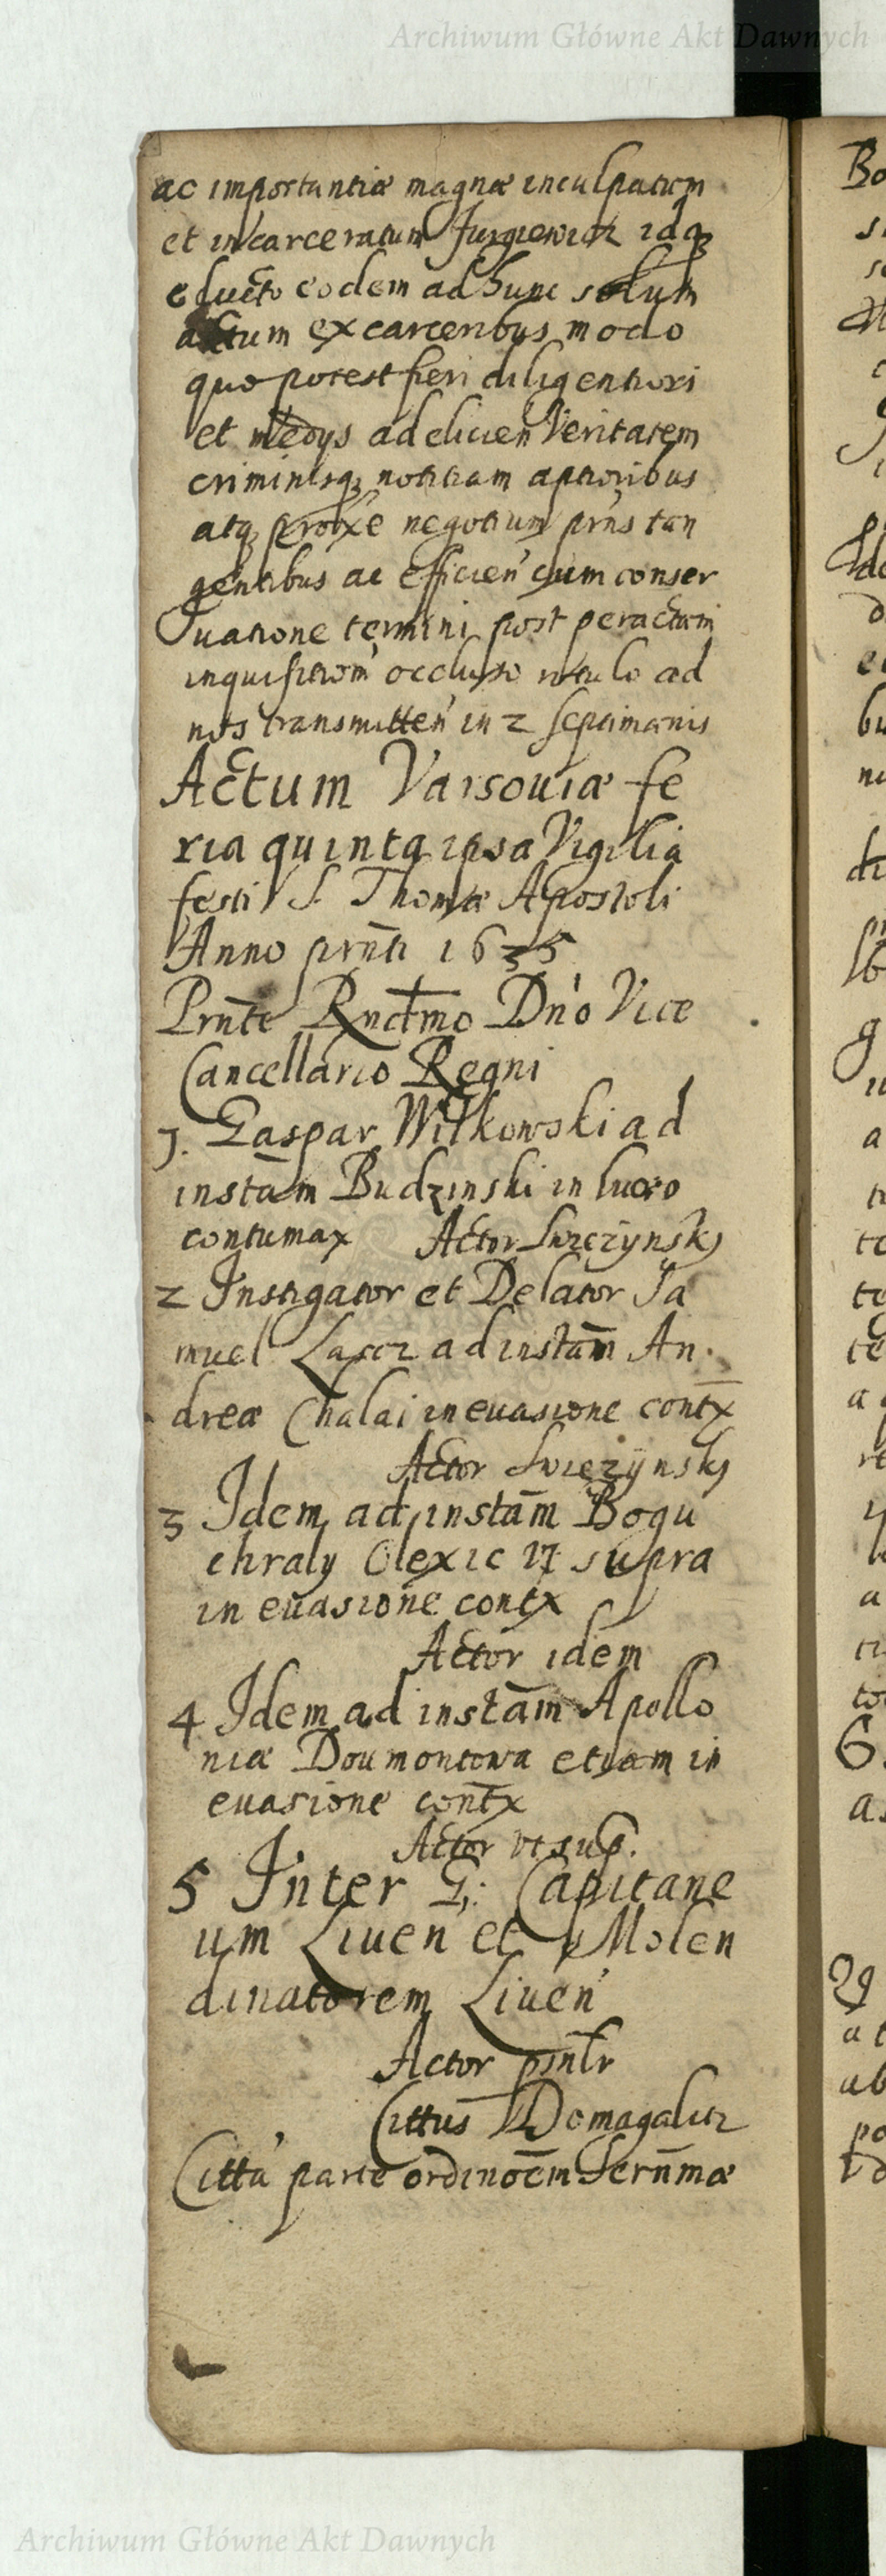 Archiwum Główne Akt Dawnych
ac importantiæ magnæ inculpatum
et incarceratum Jurgiewicz idq₃
educto eodem ad hunc solum
actum ex carceribus modo
quo potest fieri diligentiori
et medys ad elicien Veritatem
criminisq₃ notitiam aptioribus
atq₃ negotium prñs tan
gentibus ac efficien' cum conser
uatione termini post peractam
inquisitiom̄ occluso rotulo ad
nos transmitten' in 2 septimanis
Actum Varsouiæ fe
ria quinta ipsa Vigilia
festi S. Thomæ Apostoli
Anno prn̄ti 1635
Prn̄te Rndmo Dn'o Vice
Cancellario Regni
1. Gaspar Witkowski ad
instām Budzinski in lucro
contumax Actor Swiezÿnsky
2 Instigator et Delator Sa
muel Lascz ad instām An
dreæ Chalai in euasione cont̄x
Actor Swiezÿnsky
3 Idem ad instām Bogu
chraly Olexic vt supra
in euasione cont̄x
Actor idem
4 Idem ad instām Apollo
niæ Doumontowa etiam in
euasione cont̄x
Actor vt sup.
5 Inter G: Capitane
um Liuen' et Molen
dinatorem Liuen'
Actor psnl̄r
Cittus Domagalicz
Citta' parte ordinōem Sern̄mæ
Bo
Archiwum Główne Akt Dawnych